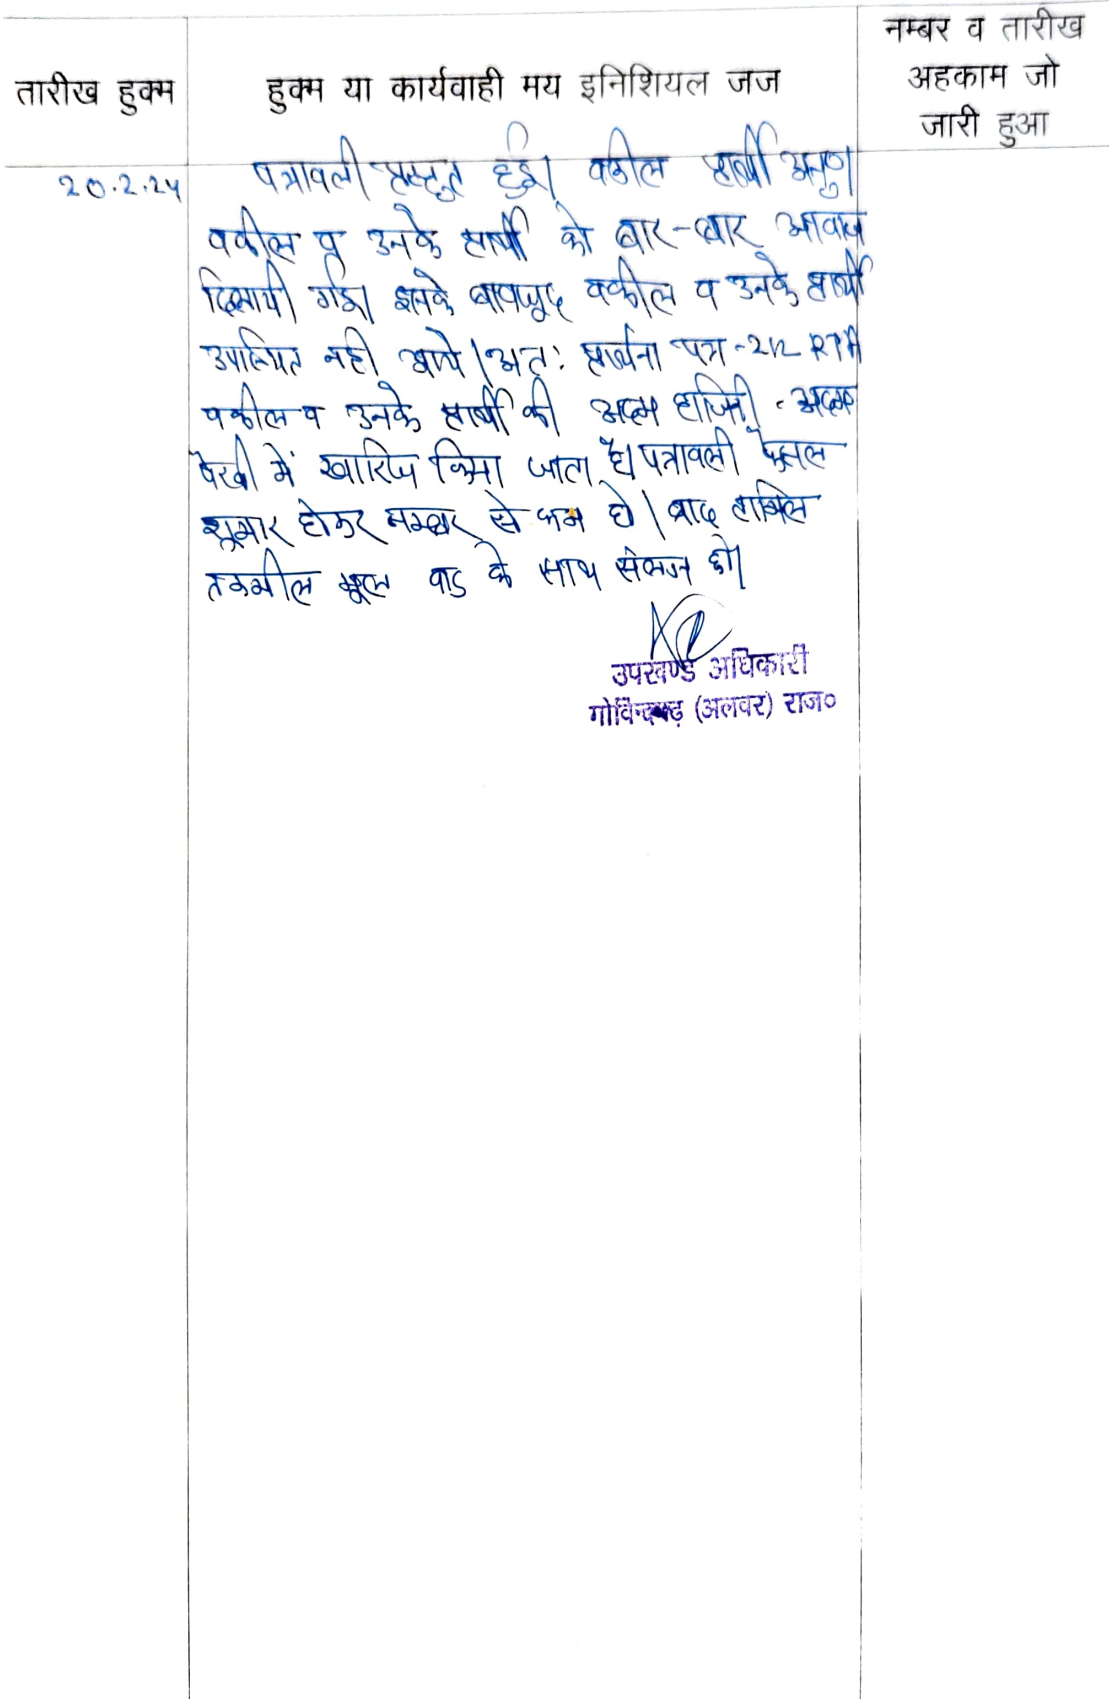 तारीख हुक्म
हुक्म या कार्यवाही मय इनिशियल जज
नम्बर व तारीख
अहकाम जो
जारी हुआ
20.2.24
पत्रावली प्रस्तुत हुई। वकील प्रार्थी अनु०।
वकील व उनके प्रार्थी को बार-बार आवाज
दिलायी गई। इसके बावजूद वकील व उनके प्रार्थी
उपस्थित नही आये। अत: प्रार्थना पत्र-212 RTA
वकील व उनके प्रार्थी की अदम हाजिरी - अदम
पैरवी में खारिज किया जाता है। पत्रावली फैसल
शुमार होकर नम्बर से कम हो। बाद तामिल
तकमील मूल वाद के साथ संलग्न हो।
उपखण्ड अधिकारी
गोविन्दगढ़ (अलवर) राज०